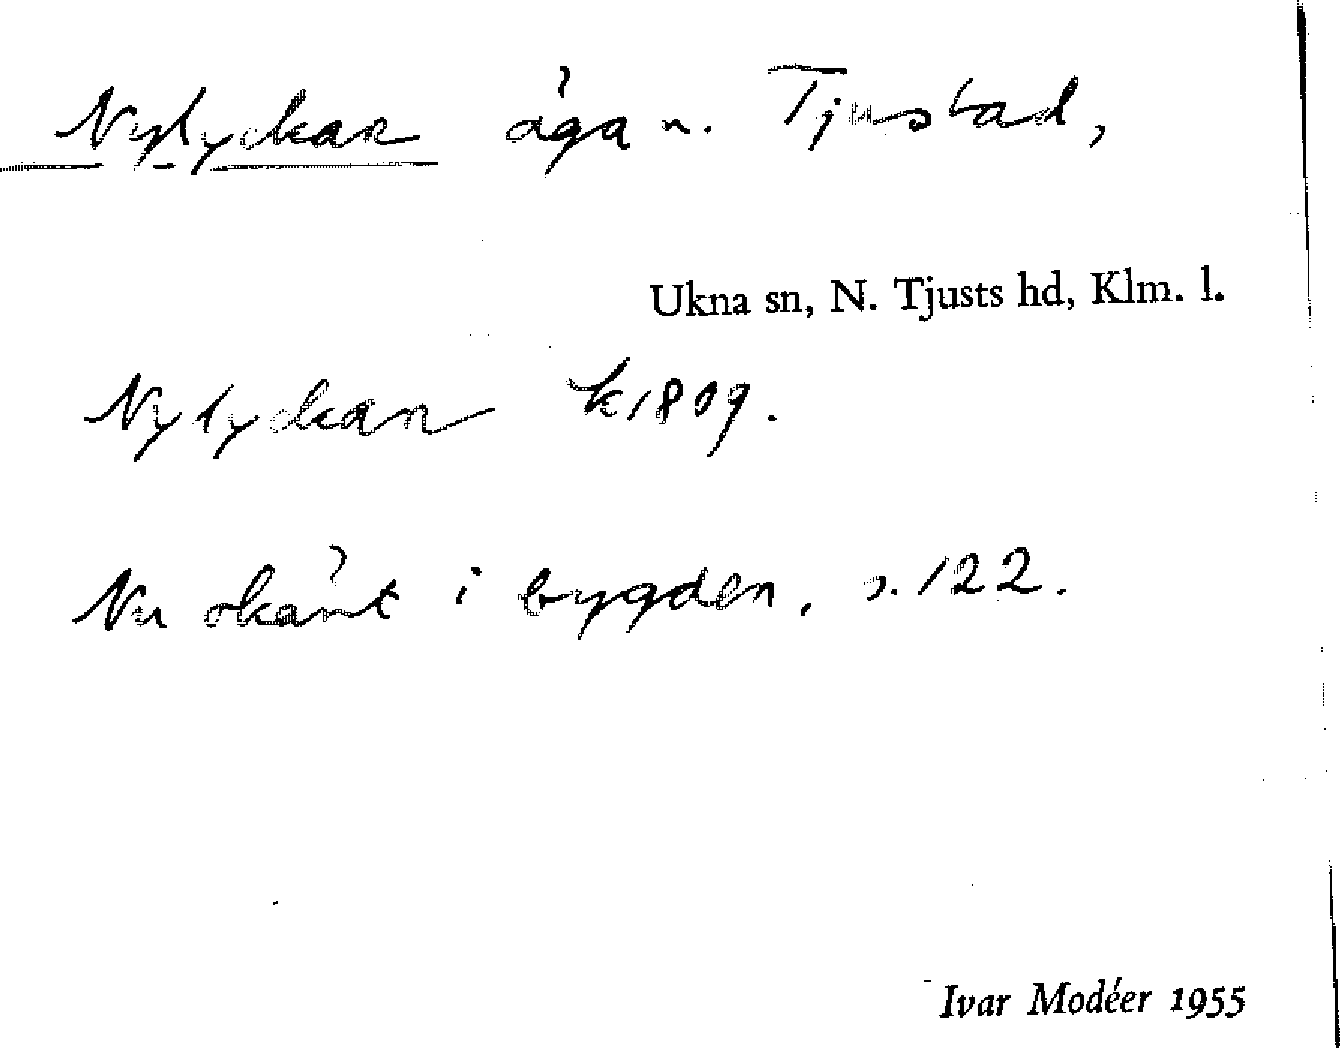 Nytyckan äga n. Tjustad,
Ukna sn, N. Tjusts hd, Klm. l.
Nytyckan k 1809.
Nu okänt i bygden. s. 122.
Ivar Modéer 1955